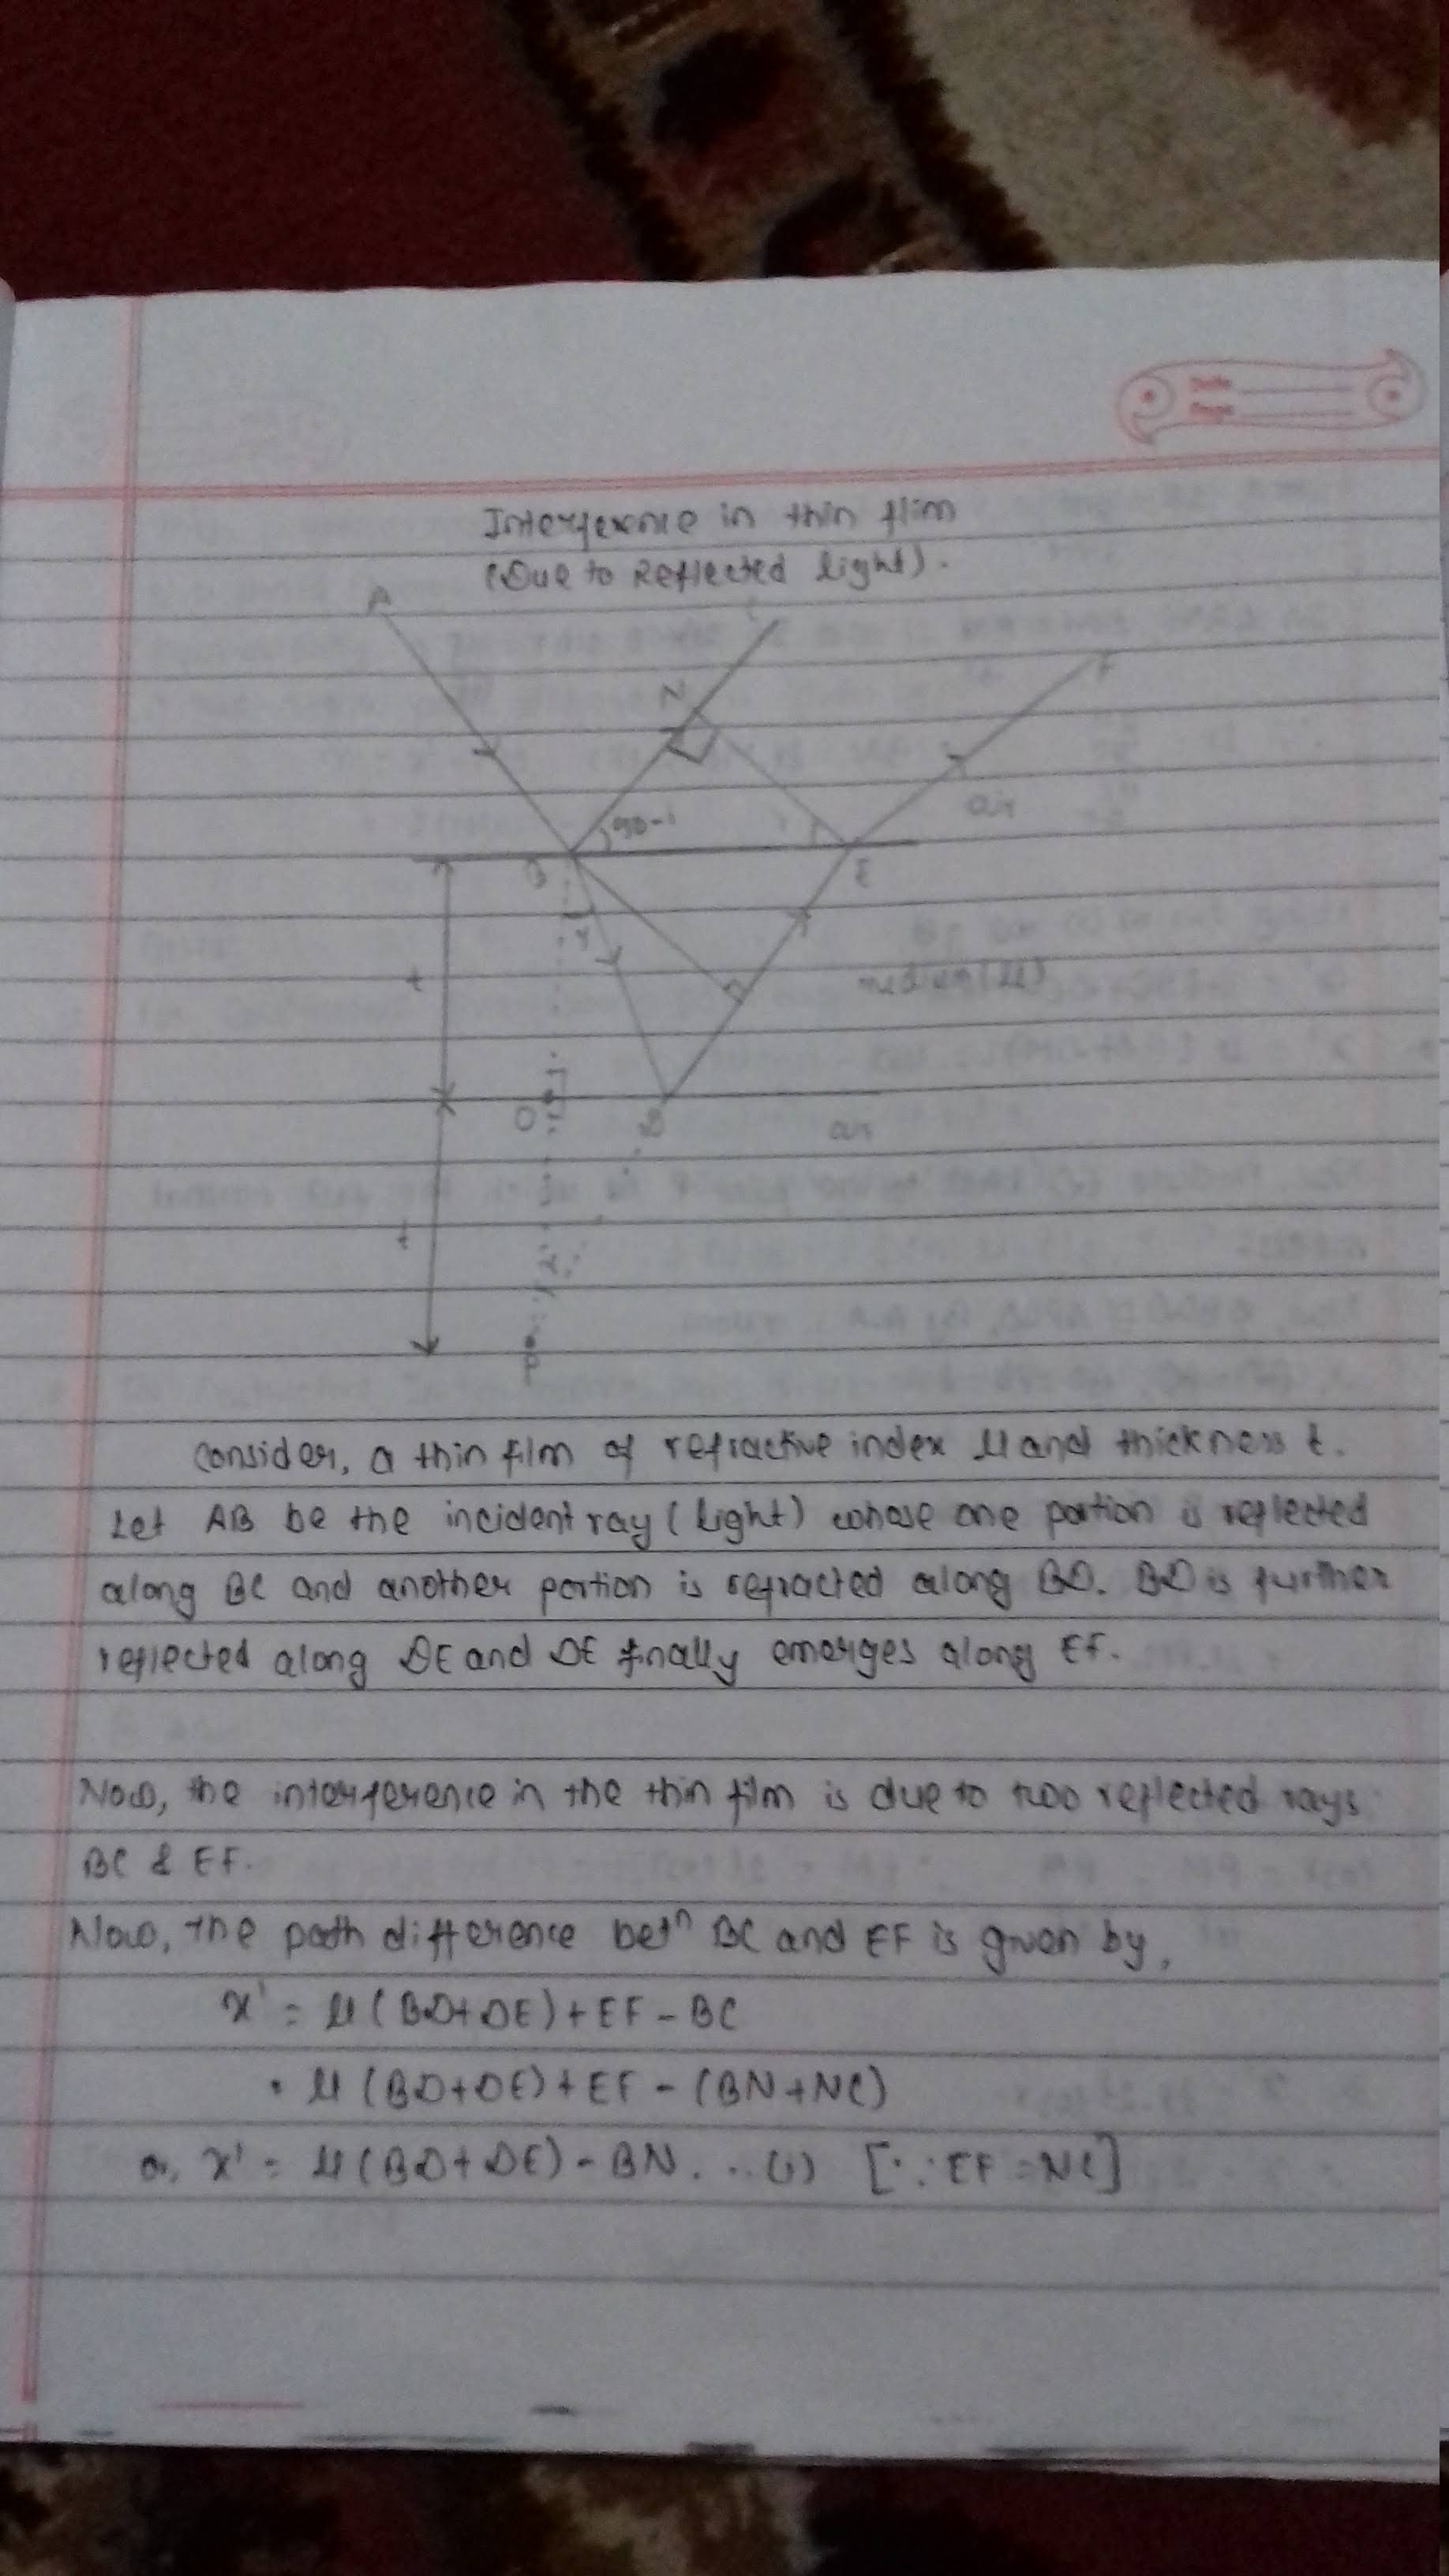 Date
Page
Interference in thin flim
(Due to Reflected light).
A
N
F
90-i
i
air
B
E
r
t
medium (μ)
O
D
air
t
r
P
Consider, a thin film of refractive index μ and thickness t.
Let AB be the incident ray (light) whose one portion is reflected
along BC and another portion is refracted along BD. BD is further
reflected along DE and DE finally emerges along EF.
Now, the interference in the thin film is due to two reflected rays
BC & EF.
Now, the path difference betn BC and EF is given by,
x' = μ(BD+DE)+EF-BC
= μ(BD+DE)+EF-(BN+NC)
or, x' = μ(BD+DE)-BN. ..(i) [∵EF=NC]